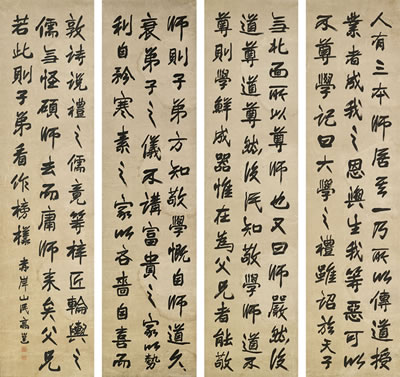 人有三本師居其一乃所以傳道授
業者成我之恩與生我等惡可以
不尊學記曰大學之禮雖詔於天子
無北面所以尊師也又曰師嚴然後
道尊道尊然後民知敬學師道不
尊則學鮮成器惟在為父兄者能敬
師則子弟方知敬學慨自師道久
衰弟子之儀不講富貴之家以勢
利自矜寒素之家以吝嗇自喜而
敦詩說禮之儒竟等梓匠輪輿之
儒無怪碩師去而庸師來矣父兄
若此則子弟看作榜樣 赤岸山民高邕